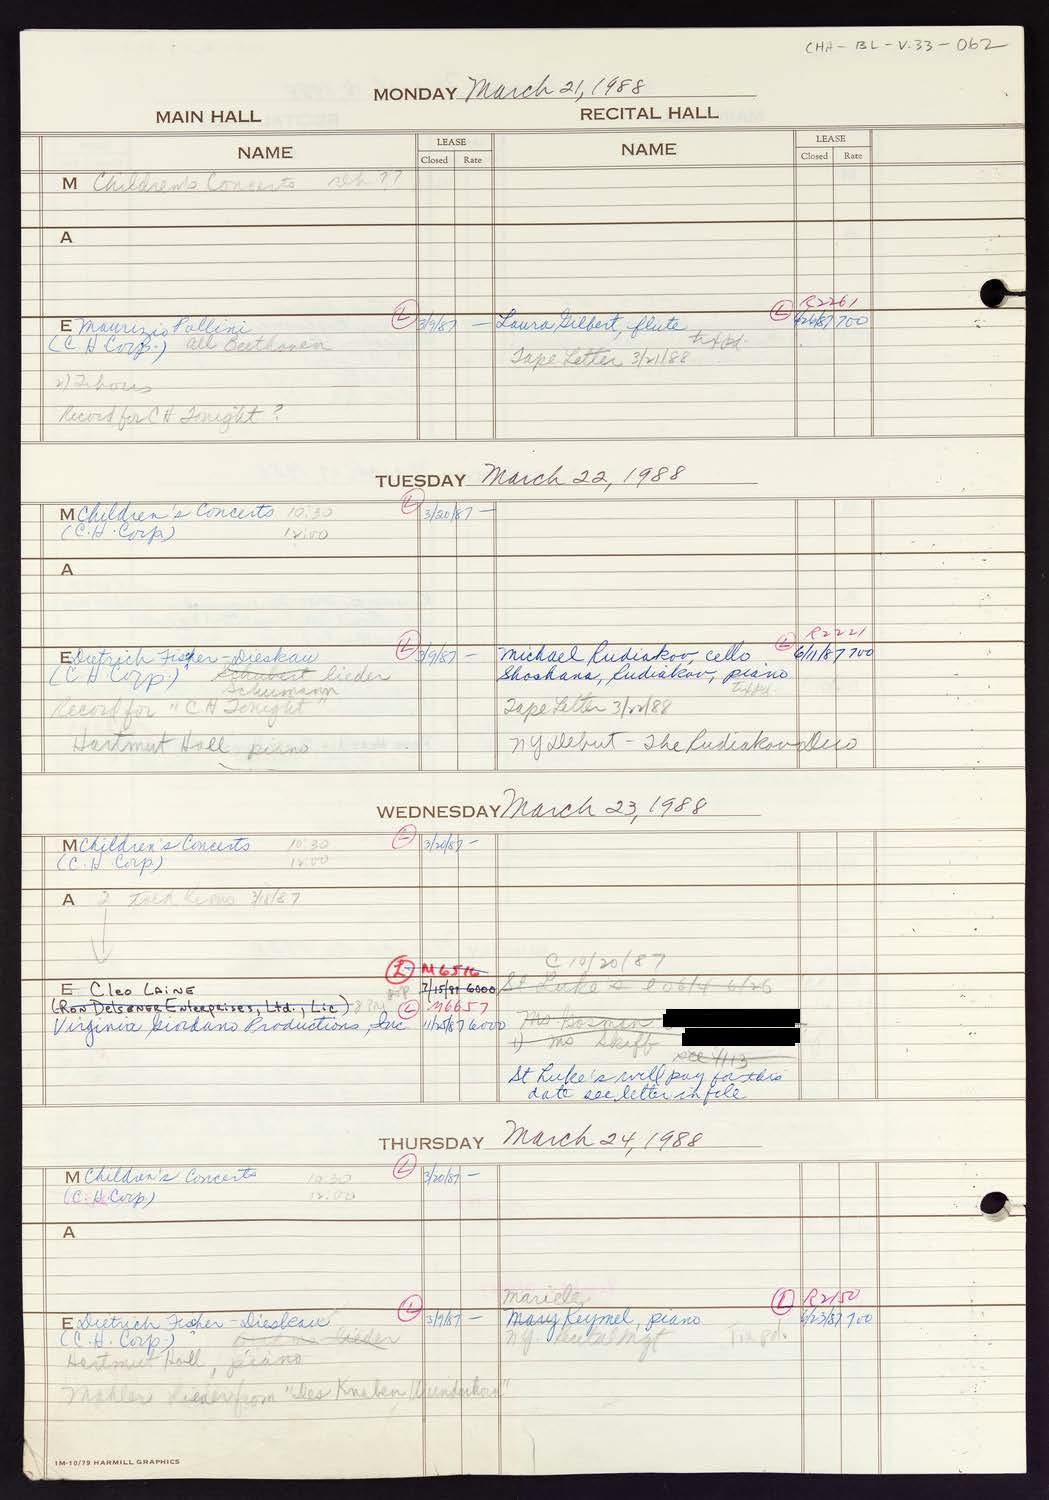 CHA-BL-V.33-062
MONDAY March 21, 1988
MAIN HALL RECITAL HALL
NAME LEASE NAME LEASE
Closed Rate Closed Rate
M Children's Concerts reh ??
A
L L R2261
E Maurizio Pollini 3/9/87 — Laura Gilbert, flute 700
(C.H Corp.) all Beethoven
Tape Letter 3/21/88
2) 2 hours
Record for CH Tonight ?
TUESDAY March 22, 1988
L
M Children's Concerts 10:30 3/20/87 —
(C.H. Corp) 12:00
A
L L R2221
E Dietrich Fisher-Dieskau 3/9/87 — Michael Rudiakov, cello 6/11/87 700
(C.H Corp) Schubert lieder Shoshana, Rudiakov, piano
Schumann
Record for "C H Tonight" Tape Letter 3/22/88
Hartmut Holl piano NY Debut - The Rudiakov Duo
WEDNESDAY March 23, 1988
M Children's Concerts 10:30 3/20/87 —
(C.H Corp) 12:00
A 3/18/87
C 10/20/87
L M6516
E Cleo Laine 7/15/87 6000 St Luke's
(Ron Delsener Enterprises, Ltd., Lic) 8 PM L M6657
Virginia Giordano Productions, Inc 11/25/87 6000 Ms
1) Ms Skiff
see 4/113
St Luke's will pay for this
date see letter in file
THURSDAY March 24, 1988
L
M Children's Concerts 10:30 3/20/87 —
(C.H. Corp) 12:00
A
Mariele
L L R2150
E Dietrich Fisher-Dieskau 3/9/87 — Mary Keymel, piano 6/23/87 700
(C.H. Corp) lieder N.Y. Recital Mgt
Hartmut Holl, piano
Mahler Lieder from "Des Knaben Wunderhorn"
1M-10/79 HARMILL GRAPHICS